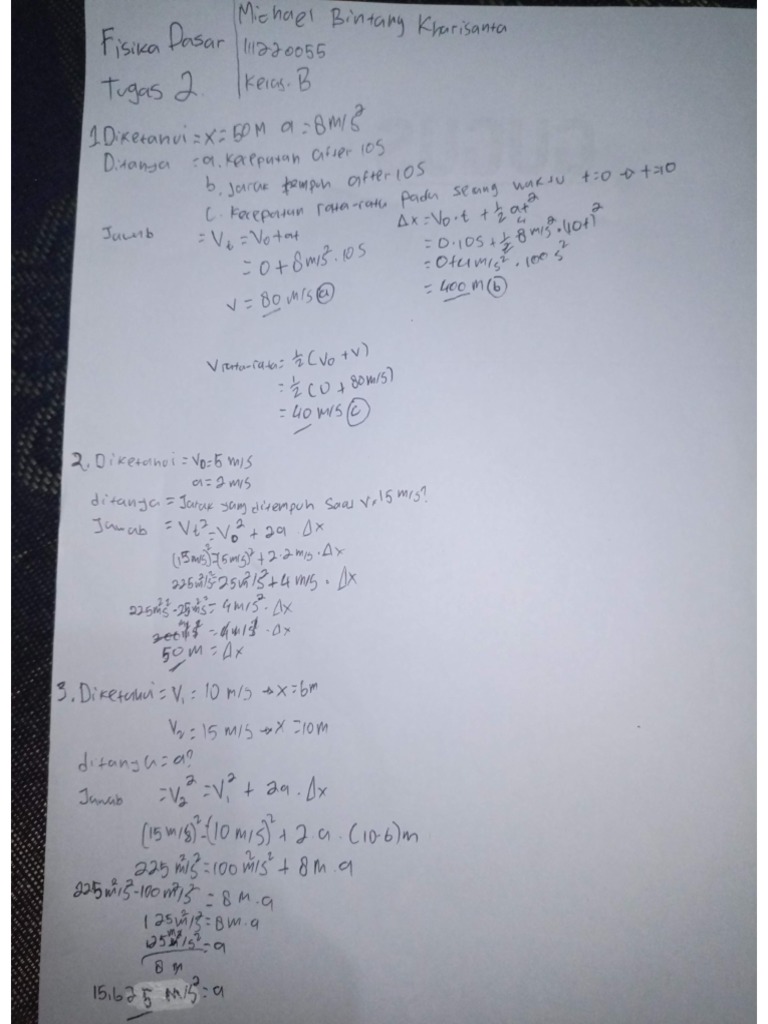 Fisika Dasar
Tugas 2
Michael Bintang Kharisanta
111220055
Kelas. B
1. Diketahui = x = 50 m a = 8 m/s²
Ditanya = a. Kecepatan after 10 s
b. Jarak tempuh after 10 s
c. Kecepatan rata-rata pada selang waktu t=0 → t=10
Jawab = Vt = Vo + at
= 0 + 8 m/s² . 10 s
v = 80 m/s (a)
Δx = Vo . t + ½ at²
= 0 . 10 s + ½ 8 m/s² . (10)²
= 0 + 4 m/s² . 100 s²
= 400 m (b)
V rata-rata = ½ (Vo + V)
= ½ (0 + 80 m/s)
= 40 m/s (c)
2. Diketahui = Vo = 5 m/s
a = 2 m/s
ditanya = Jarak yang ditempuh saat v. 15 m/s?
Jawab = Vt² = Vo² + 2a . Δx
(15 m/s)² = (5 m/s)² + 2 . 2 m/s . Δx
225 m²/s² = 25 m²/s² + 4 m/s . Δx
225 m²/s² - 25 m²/s² = 4 m/s² . Δx
= 4 m/s² . Δx
50 m = Δx
3. Diketahui = V₁ = 10 m/s → x = 6 m
V₂ = 15 m/s → x = 10 m
ditanya = a?
Jawab = V₂² = V₁² + 2a . Δx
(15 m/s)² = (10 m/s)² + 2 . a . (10-6) m
225 m²/s² = 100 m²/s² + 8 m . a
225 m²/s² - 100 m²/s² = 8 m . a
125 m²/s² = 8 m . a
125 m²/s² = a
8 m
15,625 m/s² = a